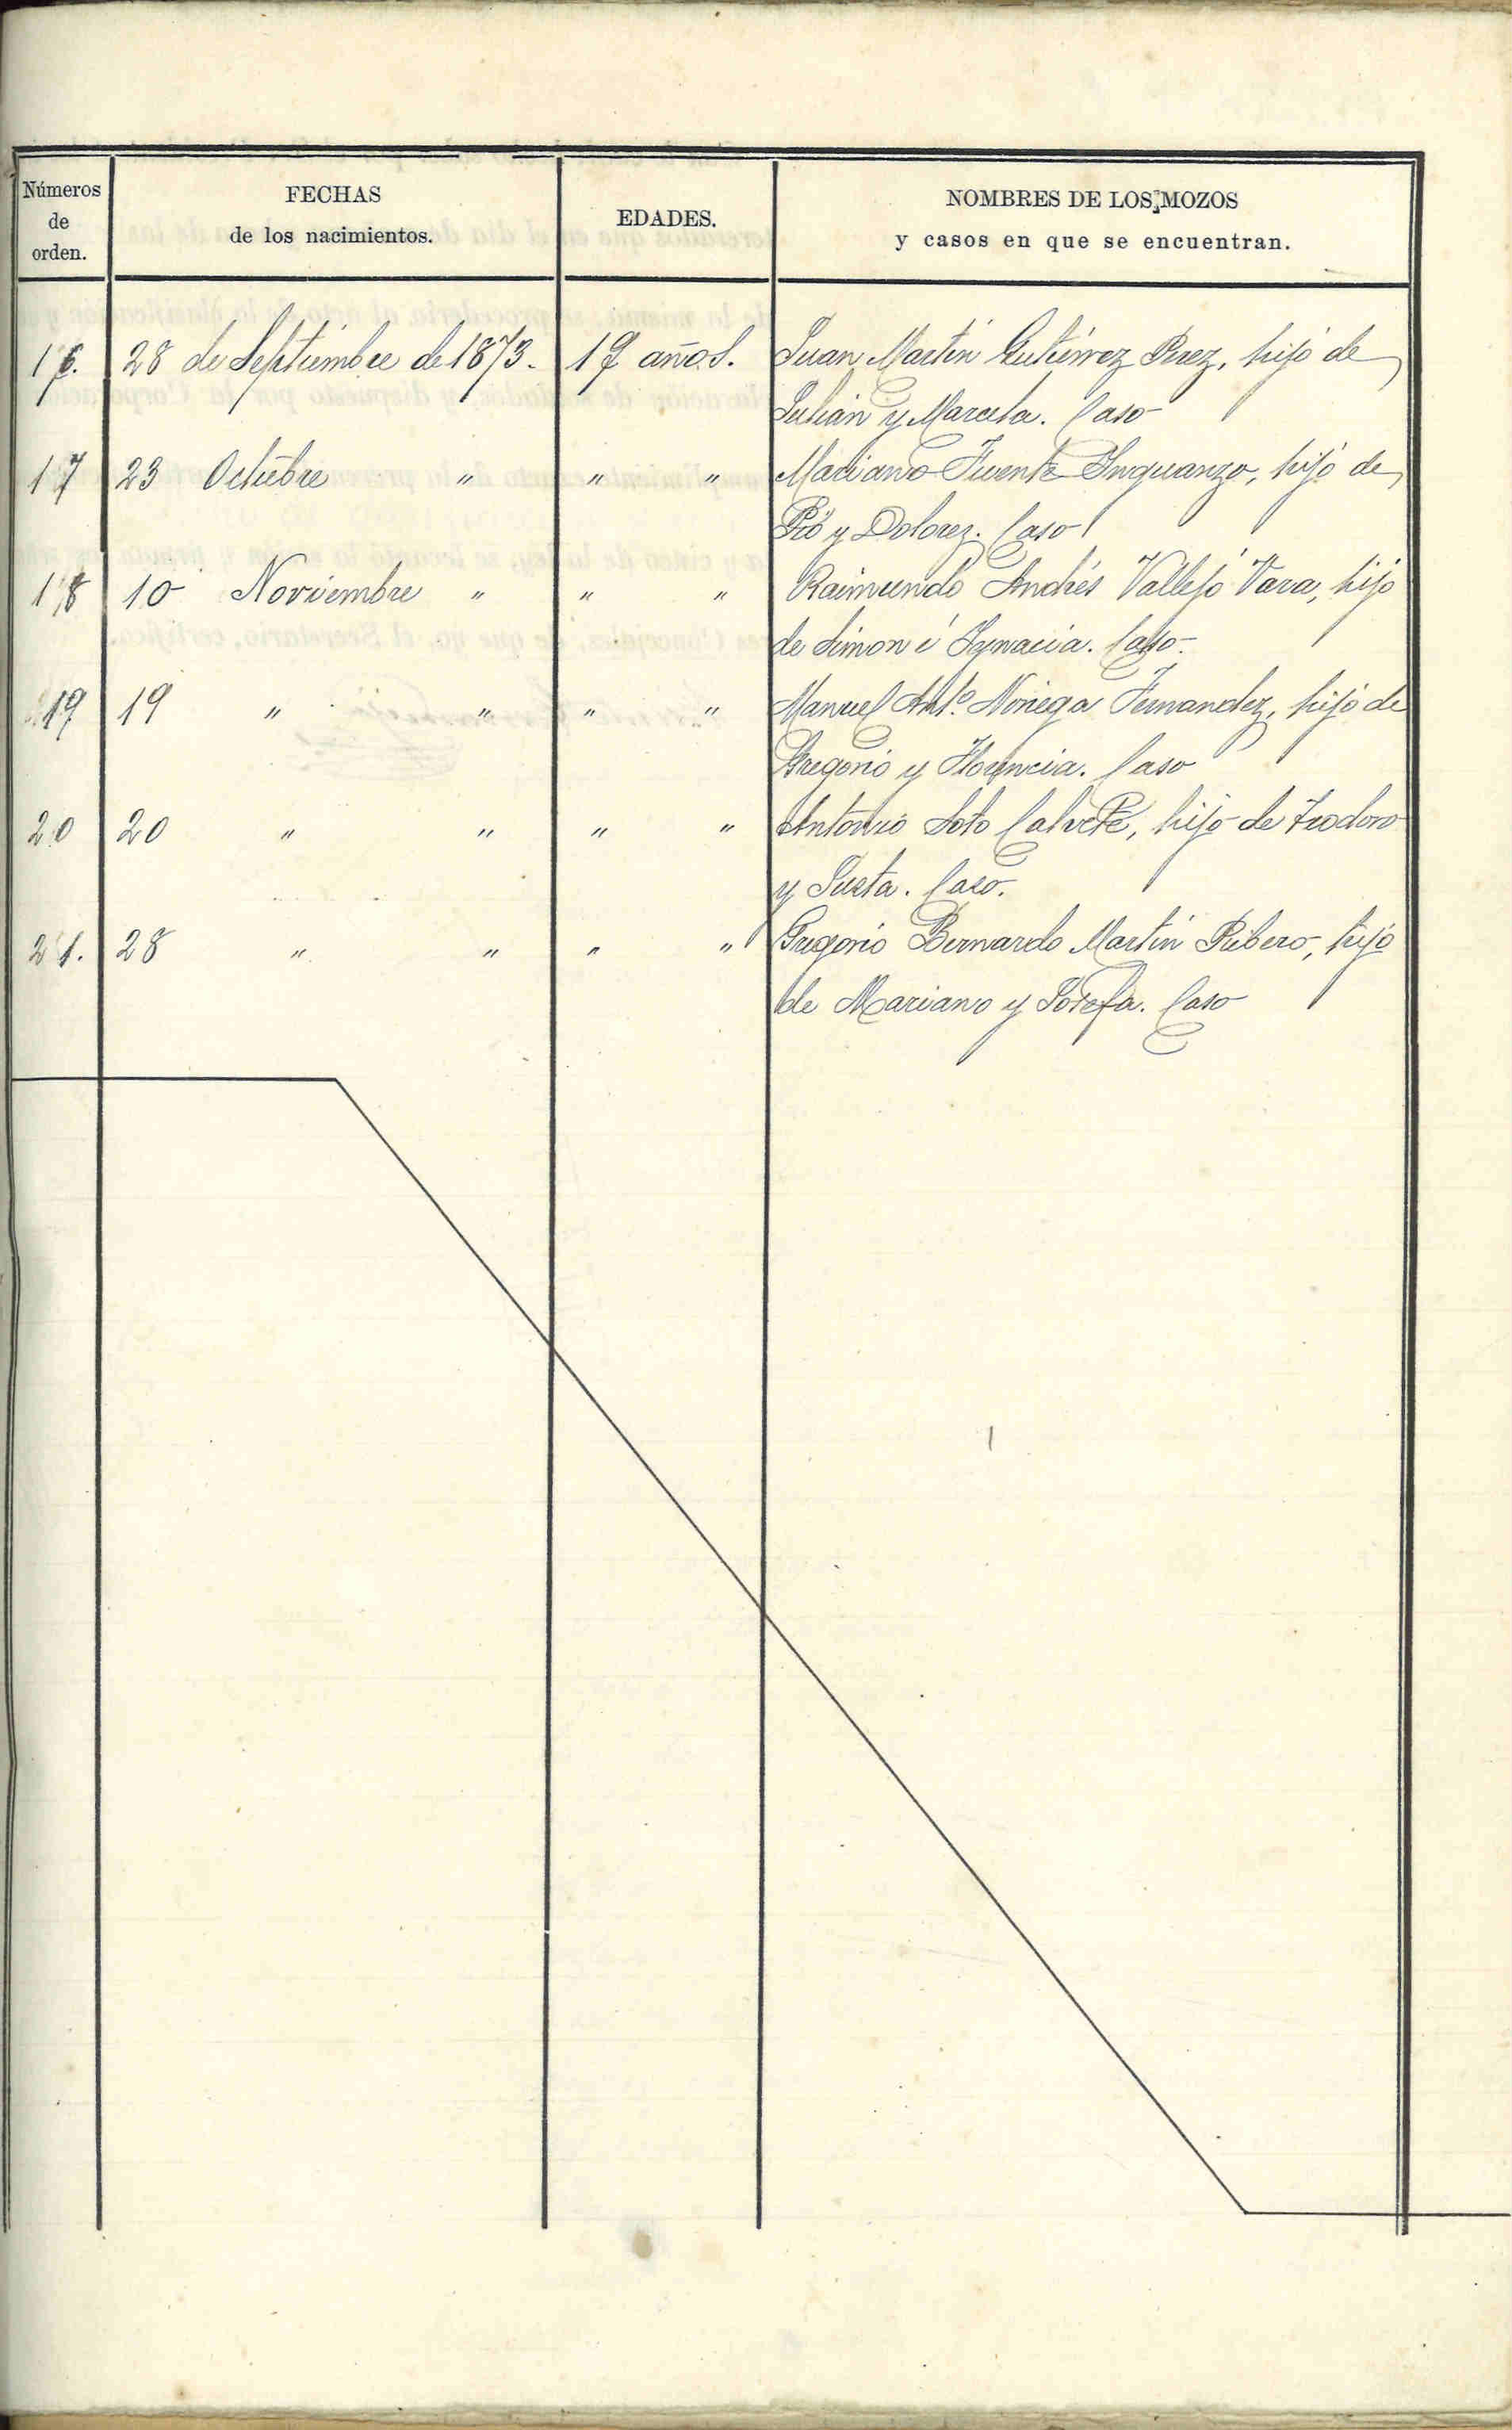 Números
de
orden.
FECHAS
de los nacimientos.
EDADES.
NOMBRES DE LOS MOZOS
y casos en que se encuentran.
16. 28 de Septiembre de 1873. 19 años. Juan Martín Gutiérrez Perez, hijo de
Julián y Marcela. Caso
17 23 Octubre " " " Mariano Fuente Inguanzo, hijo de
Pío y Dolorez. Caso
18 10 Noviembre " " " Raimundo Andrés Vallejo Vara, hijo
de Simon é Ignacia. Caso.
19 19 " " " " Manuel Antº. Noriega Fernandez, hijo de
Gregorio y Florencia. Caso
20 20 " " " " Antonio Soto Calvete, hijo de Teodoro
y Justa. Caso.
21. 28 " " " " Gregorio Bernardo Martín Ribero, hijo
de Mariano y Josefa. Caso